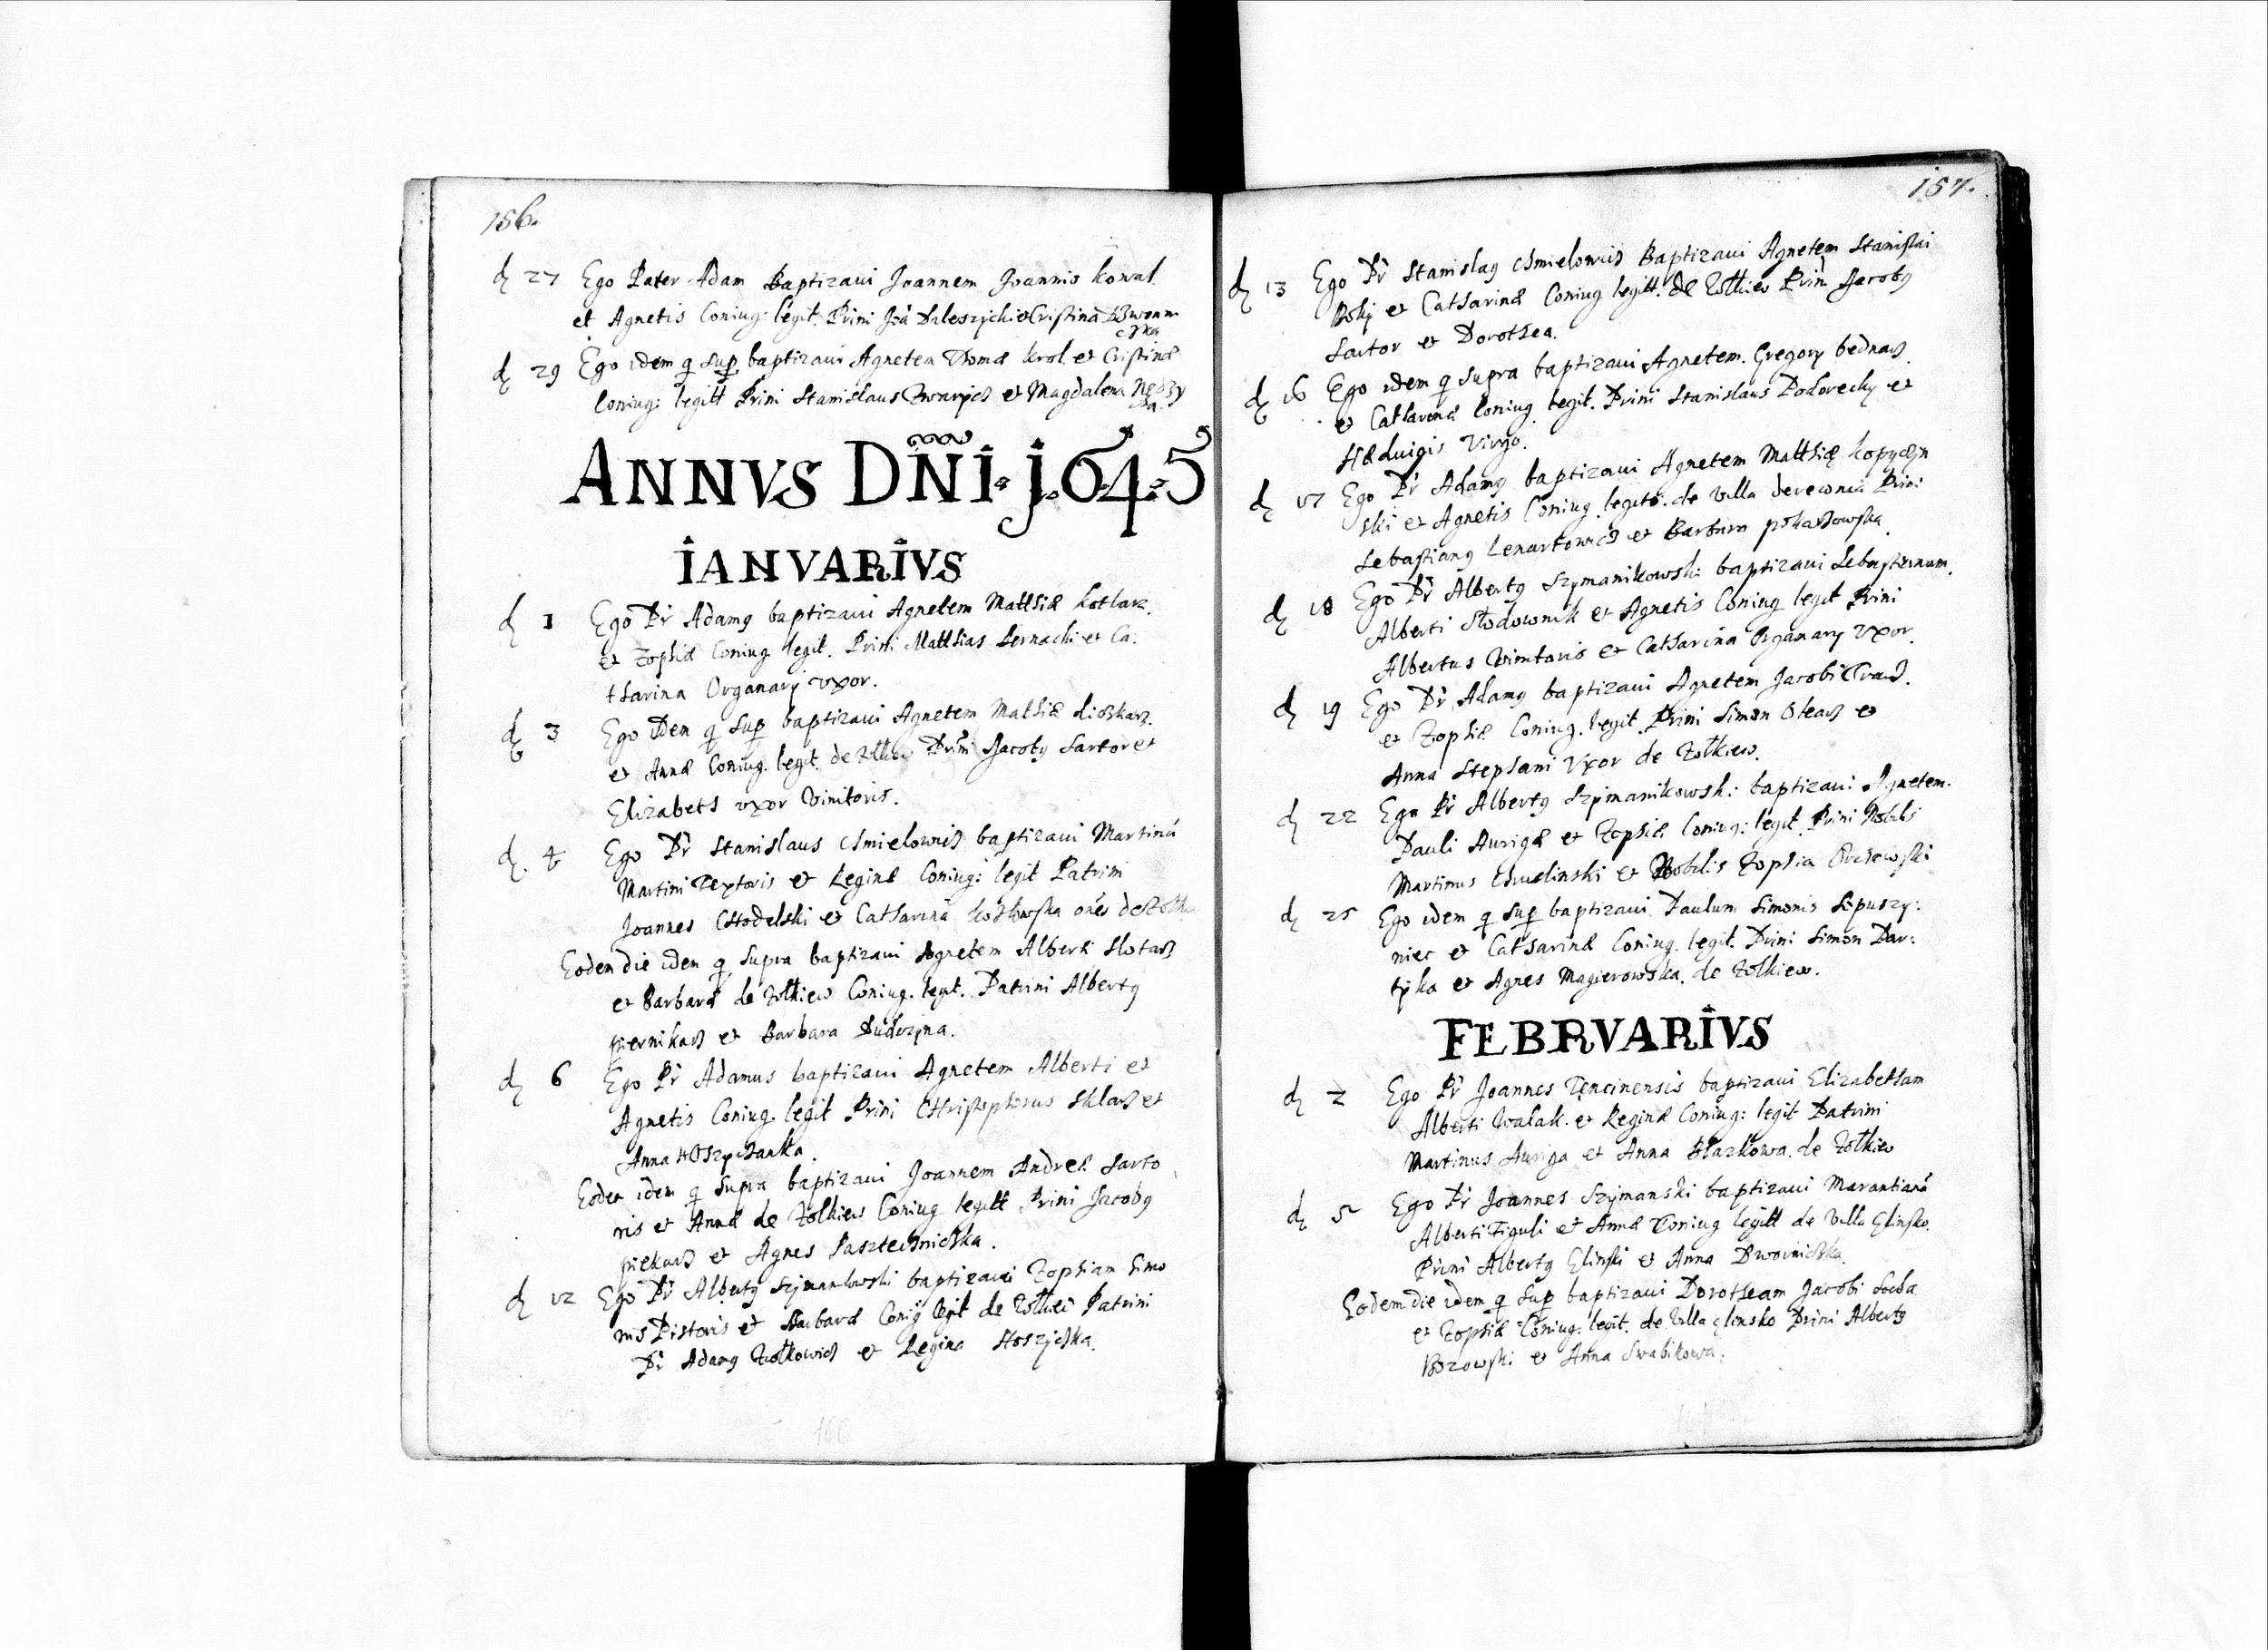 156.
d 27 Ego Pater Adam Baptizaui Joannem Joannis kowal
et Agnetis Coniug: legit. Prini Joã Daleszycki et Cristina Dzwonni
czka
d 29 Ego idem q sup baptizaui Agnetem Thomæ krol et Cristinæ
Coniug: legitt Prini Stanislaus et Magdalena
ANNVS DÑI. 1645
IANVARIVS
d 1 Ego Pr Adamg baptizaui Agnetem Matthiæ kotlarz.
et Zophiæ Coniug legit. Prini Matthias et Ca:
tharina Organarij vxor.
d 3 Ego idem q sup baptizaui Agnetem Mathiæ
et Annæ Coniug. legit. de Prini Jacobg Sartor et
Elizabeth vxor Vinitoris.
d. 4 Ego Pr Stanislaus chmielowic baptizaui Martinũ
Martini Textoris et Reginæ Coniug: legit Patrini
Joannes CHodelski et Catharina kozłowska oẽs de Zolkie
Eodem die idem q supra baptizaui Agnetem Alberti
et Barbaræ de Zolkiew Coniug. legit. Patrini Albertg
piernikarz et Barbara
d 6 Ego Pr Adamus baptizaui Agnetem Alberti et
Agnetis Coniug. legit Prini CHristophorus Sklarz et
Anna
Eodem idem q supra baptizaui Joannem Andreæ Sarto
ris et Annæ de Zolkiew Coniug legitt Prini Jacobg
piekarz et Agnes
d 12 Ego Pr Albertg baptizaui Zophiam Simo
nis Pistoris et Barbaræ legit de Patrini
Pr Adamg Zolkowicz et Regina
157.
d 13 Ego Pr Stanislag chmielowic Baptizaui Agnetem Stanislai
et Catharinæ Coniug legitt. de Zolkiew Prini Jacobg
Sartor et Dorothea.
d 16 Ego idem q supra baptizaui Agnetem. Gregory bednarz
et Catharinæ Coniug. legit. Prini Stanislaus et
Hæduigis Virgo.
d 17 Ego Pr Adamg baptizaui Agnetem Matthiæ kopyczyn
ski et Agnetis Coniug. legit. de Villa Prini
Sebastiang Lenartowicz et Barbara
d 18 Ego Pr Albertg Szymanikowski baptizaui Sebastianum
Alberti Słodownik et Agnetis Coniug legit Prini
Albertus Vinitoris et Catharina Organary Vxor.
d 19 Ego Pr Adamg baptizaui Agnetem Jacobi
et Zophiæ Coniug. legit. Prini Simon Olearz et
Anna Stephani Vxor de Zolkiew.
d 22 Ego Pr Albertg Szymanikowski baptizaui Agnetem.
Pauli Aurigæ et Zophiæ Coniug: legit. Prini Nobilis
Martinus et Nobilis Zophia
d 25 Ego idem q sup baptizaui Paulum Simonis
niec et Catharinæ Coniug. legit. Prini Simon Par:
tyka et Agnes Magierowska. de Zolkiew.
FEBRVARIVS
d 2 Ego Pr Joannes Tencinensis baptizaui Elizabetham
Alberti Walak. et Reginæ Coniug: legit Patrini
Martinus Auriga et Anna de Zolkiew
d 5 Ego Pr Joannes Szymanski baptizaui Marantianã
Alberti Figuli et Annæ Coniug legitt de Villa Glinsko.
Prini Albertg Glinski et Anna Dworniczka
Eodem die idem q sup baptizaui Dorotheam Jacobi
et Zophiæ Coniug. legit. de Villa glinsko Prini Albertg
Bozowski et Anna Swabikowa.